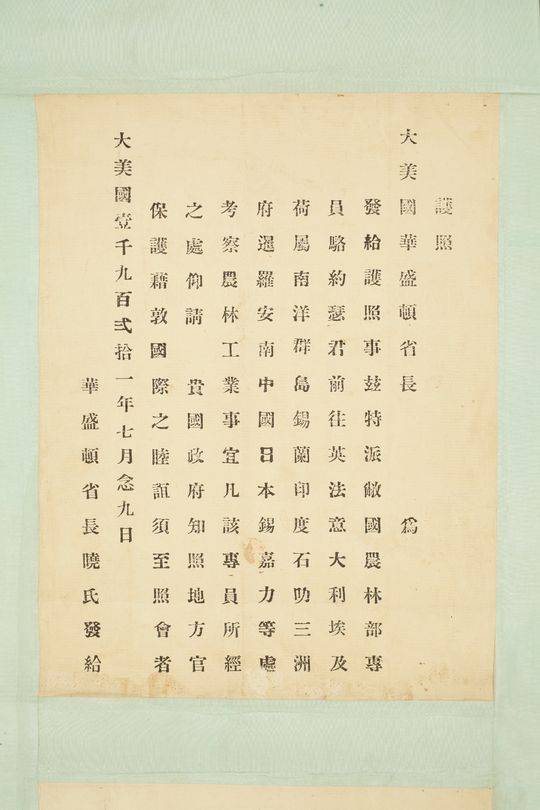 護照
大美國華盛頓省長 爲
發給護照事玆特派敝國農林部專
員駱約瑟君前往英法意大利埃及
荷屬南洋群島錫蘭印度石叻三洲
府暹羅安南中國日本錫嘉力等處
考察農林工業事宜凡該專員所經
之處仰請 貴國政府知照地方官
保護藉敦國際之睦誼須至照會者
大美國壹千九百弍拾一年七月念九日
華盛頓省長曉氏發給